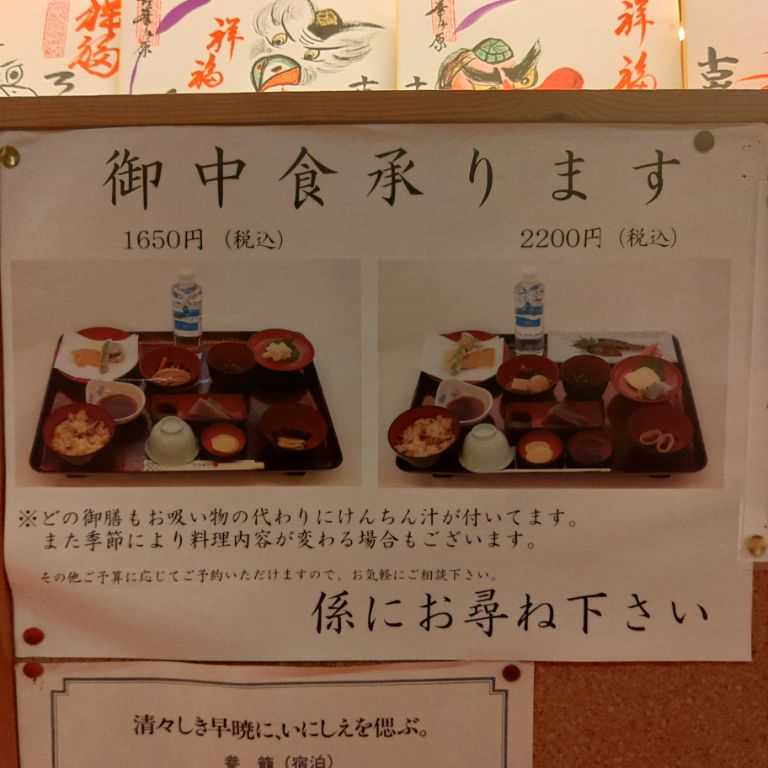 祥福
祥福
祥福
御中食承ります
1650円 (税込)
2200円 (税込)
※どの御膳もお吸い物の代わりにけんちん汁が付いてます。
また季節により料理内容が変わる場合もございます。
その他ご予算に応じてご予約いただけますので、お気軽にご相談下さい。
係にお尋ね下さい
清々しき早暁に、いにしえを偲ぶ。
参籠(宿泊)